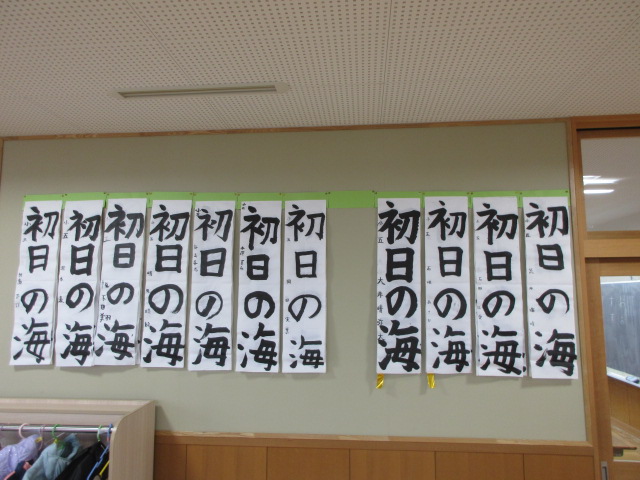 初日の海
初日の海
初日の海
初日の海
初日の海
初日の海
初日の海
初日の海
初日の海
初日の海
初日の海